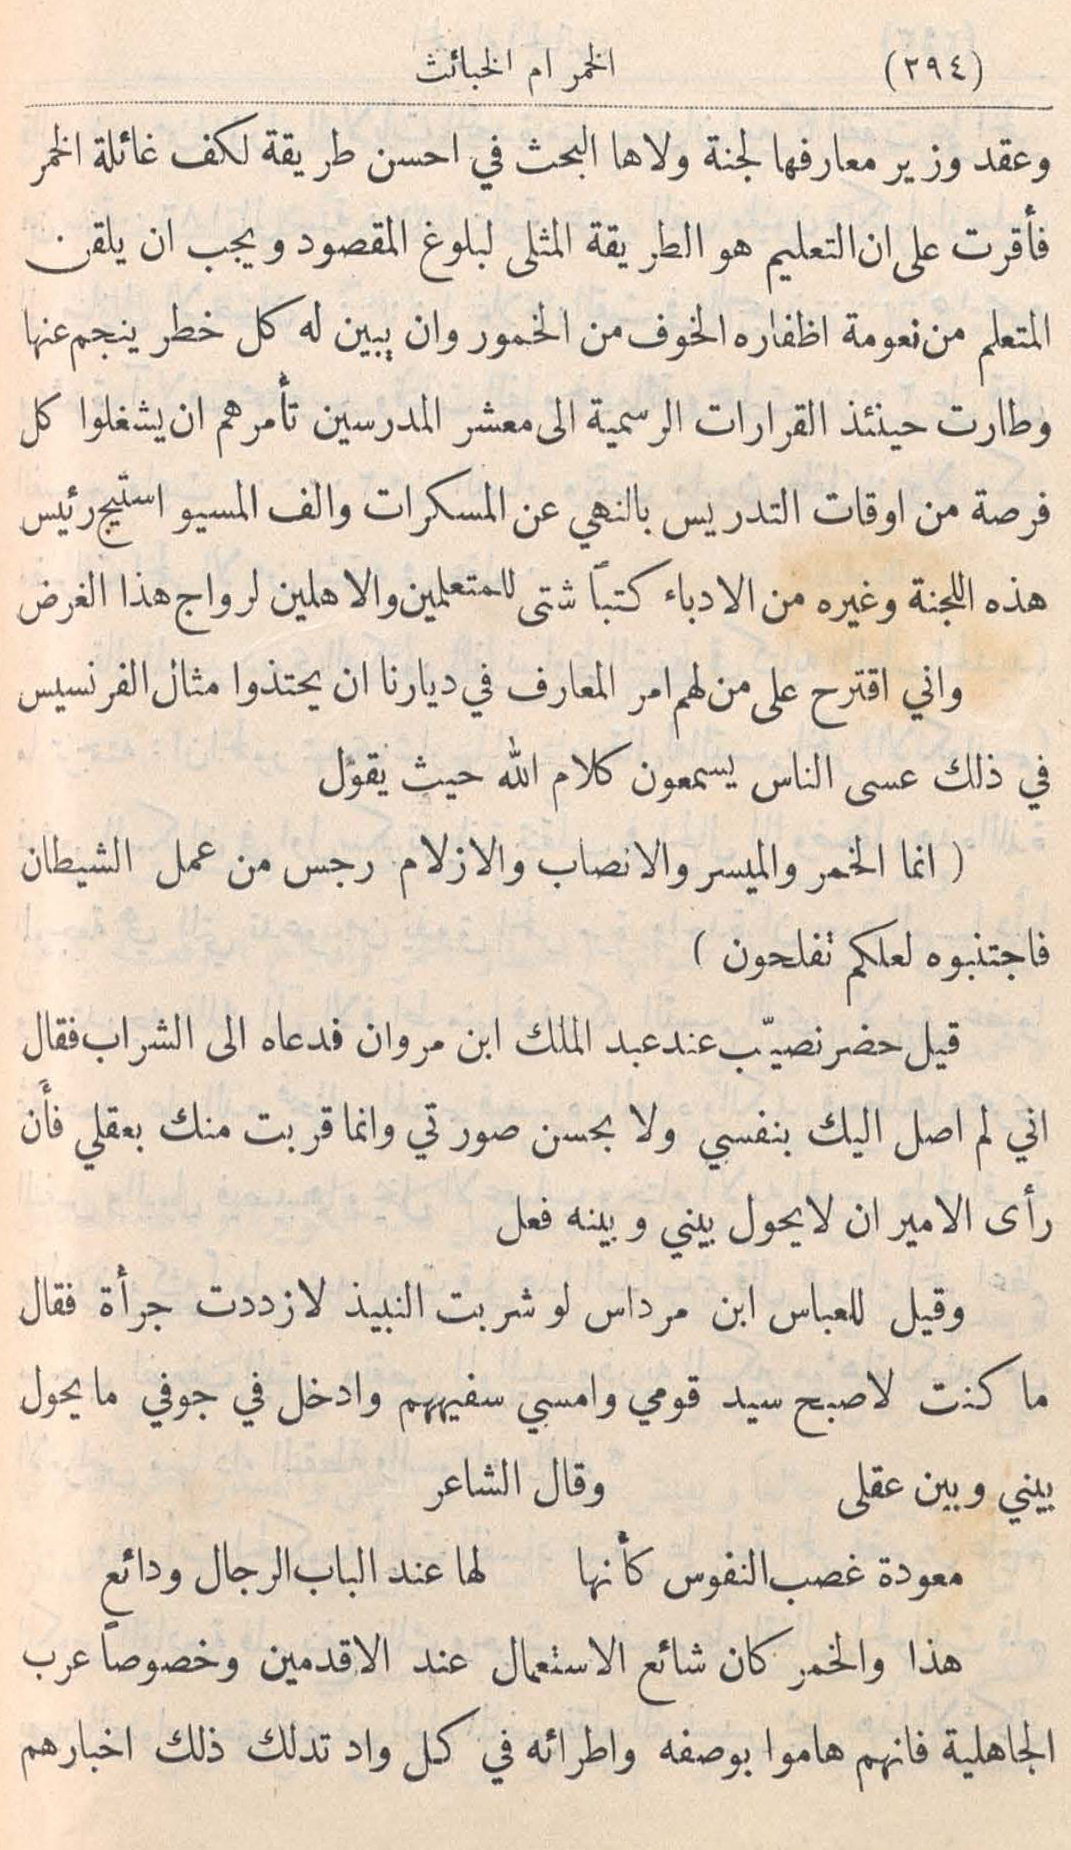 (٣٩٤) الخمر ام الخبائث
وعقد وزير معارفها لجنة ولاها البحث في احسن طريقة لكف غائلة الخمر
فأقرت على ان التعليم هو الطريقة المثلى لبلوغ المقصود ويجب ان يلقن
المتعلم من نعومة اظفاره الخوف من الخمور وان يبين له كل خطر ينجم عنها
وطارت حينئذ القرارات الرسمية الى معشر المدرسين تأمرهم ان يشغلوا كل
فرصة من اوقات التدريس بالنهي عن المسكرات والف المسيو استيج رئيس
هذه اللجنة وغيره من الادباء كتباً شتى للمتعلمين والاهلين لرواج هذا الغرض
واني اقترح على من لهم امر المعارف في ديارنا ان يحتذوا مثال الفرنسيس
في ذلك عسى الناس يسمعون كلام الله حيث يقول
( انما الخمر والميسر والانصاب والازلام رجس من عمل الشيطان
فاجتنبوه لعلكم تفلحون )
قيل حضر نصيّب عند عبد الملك ابن مروان فدعاه الى الشراب فقال
اني لم اصل اليك بنفسي ولا بحسن صورتي وانما قربت منك بعقلي فأن
رأى الامير ان لا يحول بيني وبينه فعل
وقيل للعباس ابن مرداس لو شربت النبيذ لازددت جرأة فقال
ما كنت لاصبح سيد قومي وامسي سفيههم وادخل في جوفي ما يحول
بيني وبين عقلى وقال الشاعر
معودة غصب النفوس كأنها لها عند الباب الرجال ودائع
هذا والخمر كان شائع الاستعمال عند الاقدمين وخصوصاً عرب
الجاهلية فانهم هاموا بوصفه واطرائه في كل واد تدلك ذلك اخبارهم